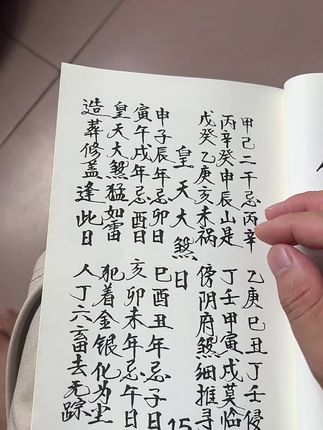 甲己二干忌丙辛 乙庚巳丑丁壬侵
丙辛癸申辰山是 丁壬甲寅戌莫临
戊癸乙庚亥未祸 傍阴府煞细推寻
皇天大煞日
申子辰年忌卯日 巳酉丑年忌子日
寅午戌年忌酉日 亥卯未年忌午日
皇天大煞猛如雷 犯着金银化为尘
造葬修盖逢此日 人丁六畜去无踪
15